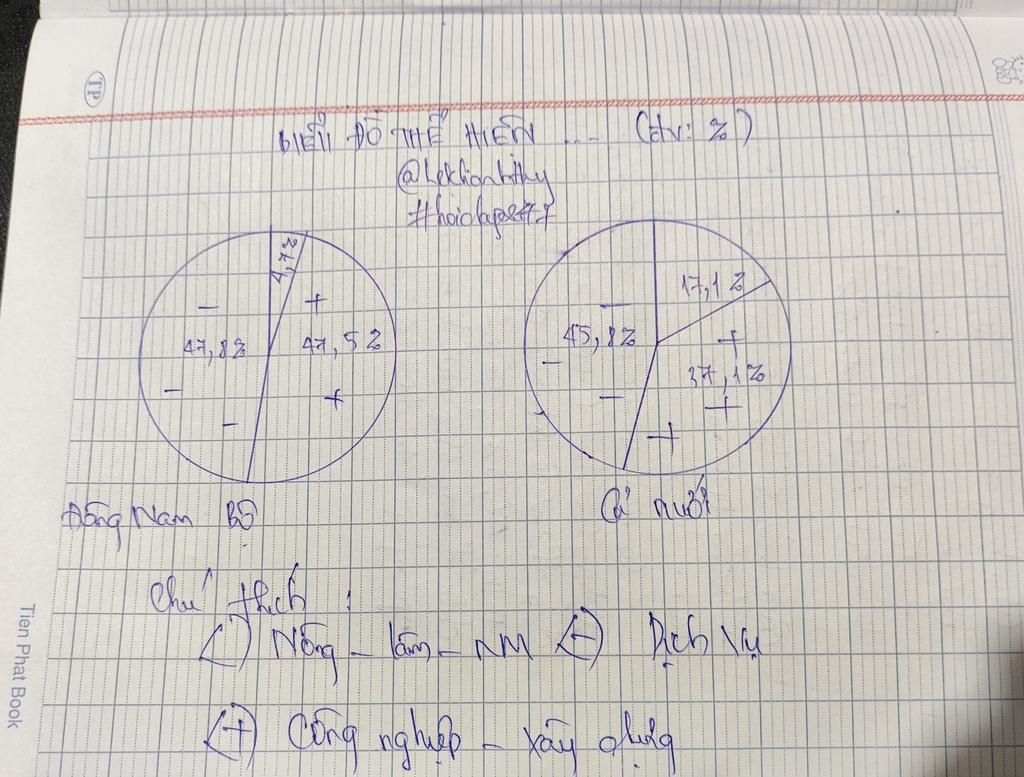 TP
BIỂU ĐỒ THỂ HIỆN ... (đv: %)
@lekhanhhthy
#hoidap247
4,7%
47,8%
47,5%
17,1%
45,8%
37,1%
Đông Nam Bộ
Cả nước
Chú thích :
Nông - lâm - NN (-) Dịch vụ
(+) Công nghiệp - xây dựng
Tien Phat Book